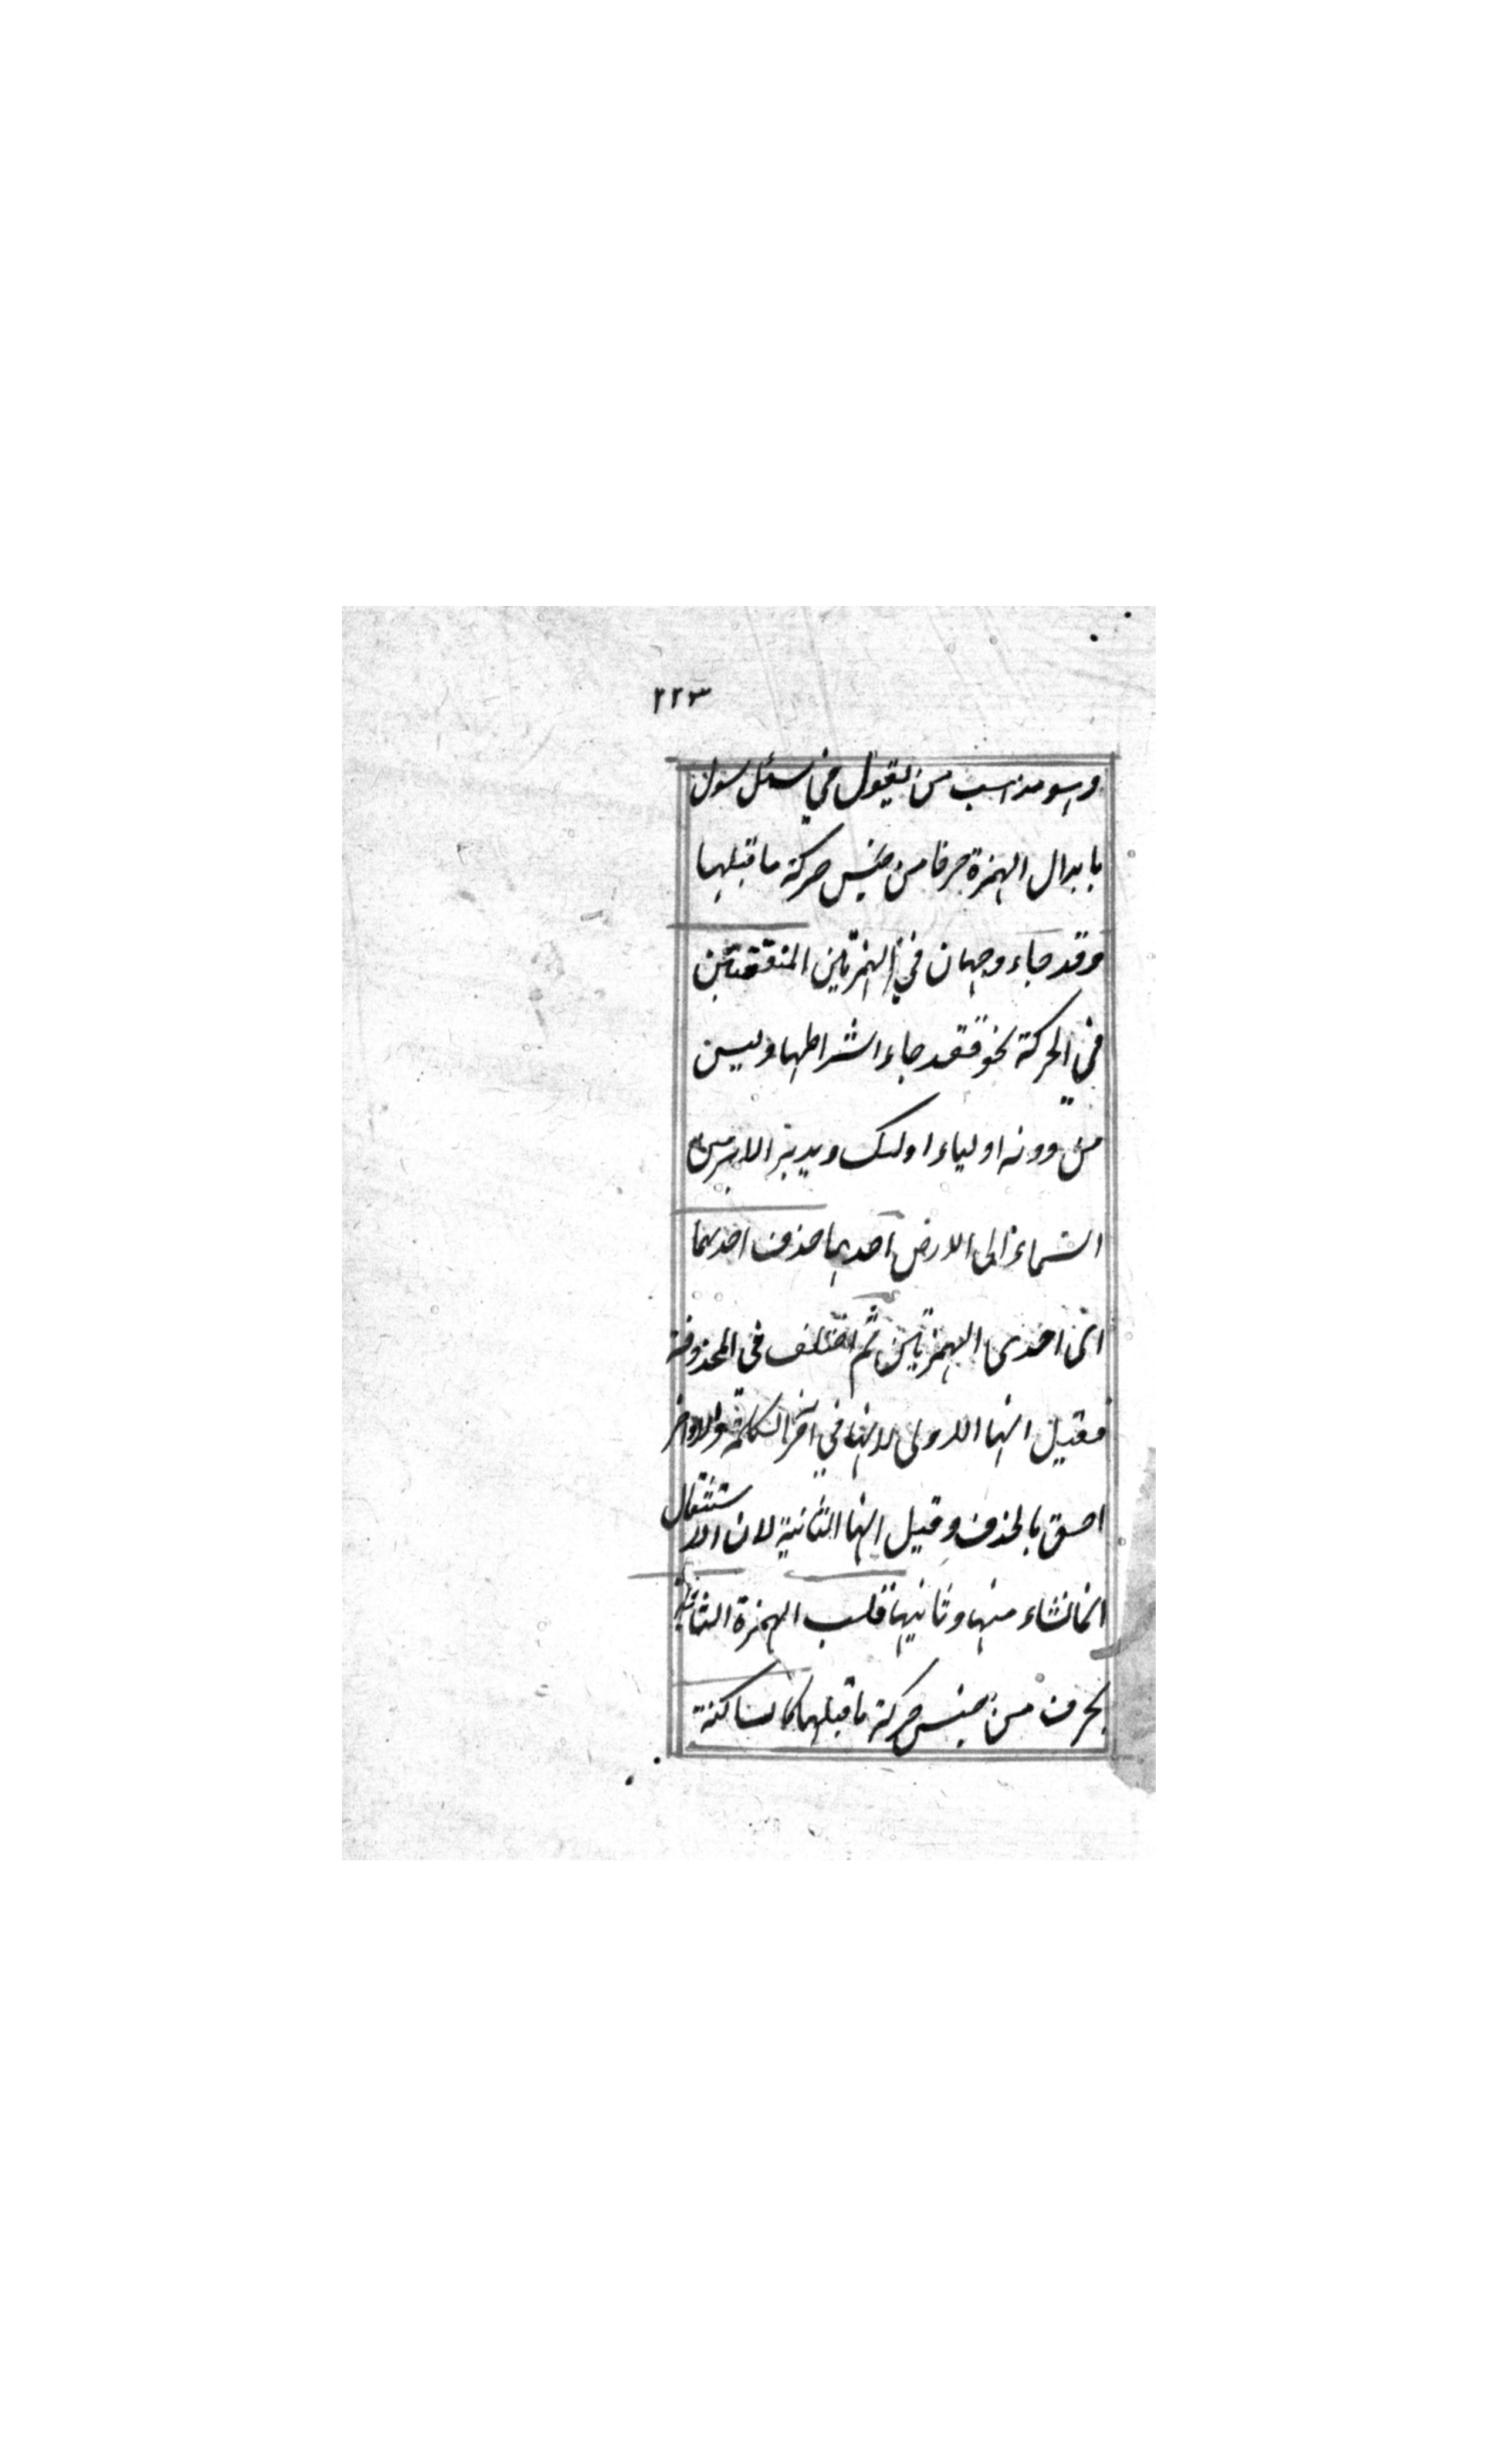 ٢٢٣
وهو مذهب من يقول في سئل سول
بابدال الهمزة حرفا من جنس حركة ما قبلها
وقد جاء وجهان في الهمزتين المتفقتين
في الحركة نحو فقد جاء اشراطها وليس
من دونه اولياء اولئك ويدبر الامر من
السماء الى الارض احدهما حذف احدهما
اى احدى الهمزتين ثم اختلف في المحذوفة
فقيل انها الاولى لانها في آخر الكلمة والاواخر
احق بالحذف وقيل انها الثانية لان الاستثقال
انما نشاء منها وثانيها قلب الهمزة الثانية
بحرف من جنس حركة ما قبلها كالساكنة